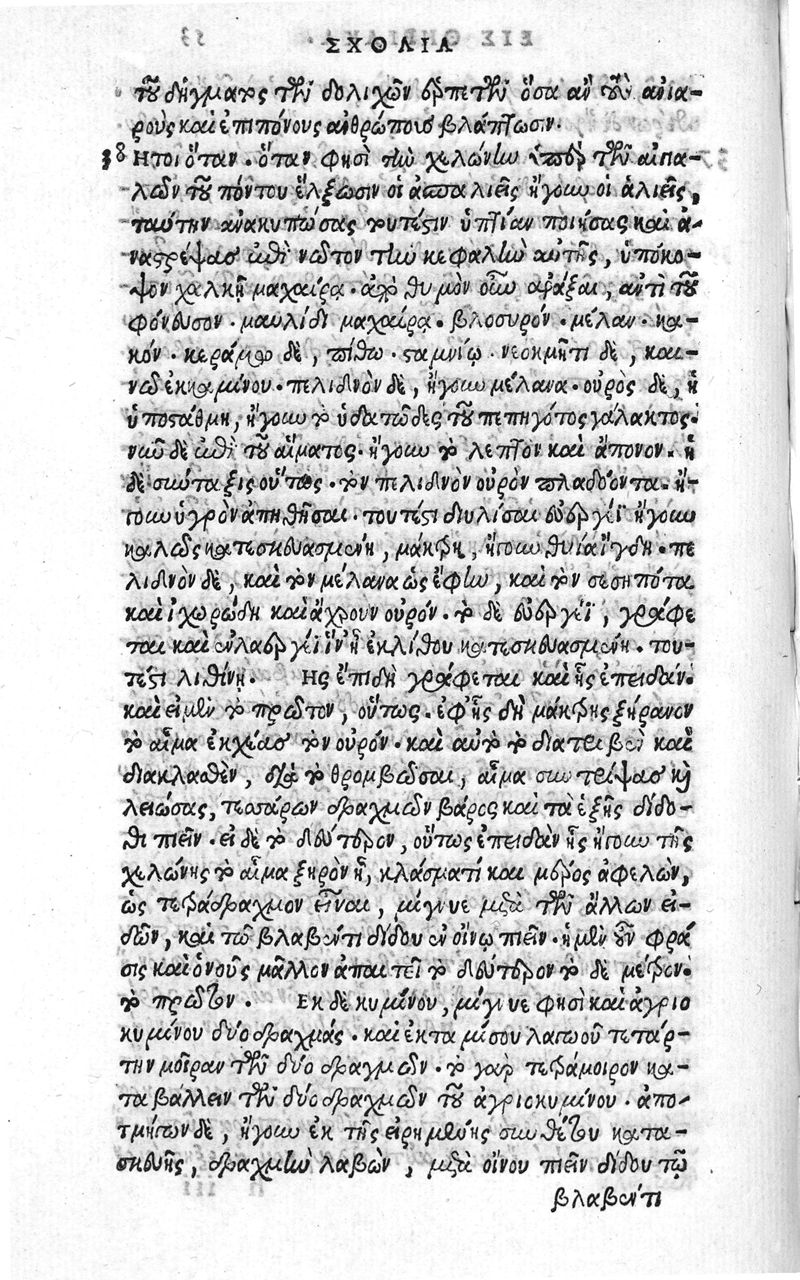 ΣΧΟΛΙΑ
τοῦ δήγματος τῶν δολιχῶν ἑρπετῶν ὅσα ἂν τοὺς ἀνια-
ροὺς καὶ ἐπιπόνους ἀνθρώποις βλάπτωσιν.
38 Ητοι ὅταν. ὅταν φησὶ τὴν χελώνην ὑπὲρ τῶν αἰγια-
λῶν τοῦ πόντου ἕλξωσιν οἱ ἀσπαλιεῖς ἤγουν οἱ ἁλιεῖς,
ταύτην ἀνακυπώσας τουτέστιν ὑπτίαν ποιήσας καὶ ἀ-
ναστρέψας ἐπὶ νῶτον τὴν κεφαλὴν αὐτῆς, ὑπόκο-
ψον χαλκῇ μαχαίρᾳ. ἀπὸ θυμὸν οὖν ἀράξαι, ἀντὶ τοῦ
φόνευσον. μαυλίδι μαχαίρᾳ. βλοσυρόν. μέλαν. κα-
κόν. κεράμῳ δὲ, πίθῳ. σταμνίῳ. νεοκμῆτι δὲ, και-
νῷ ἐκ καμίνου. πελιδνὸν δὲ, ἤγουν μέλανα. οὐρὸς δὲ, ἡ
ὑποστάθμη, ἤγουν τὸ ὑδατῶδες τοῦ πεπηγότος γάλακτος.
νῦν δὲ ἐπὶ τοῦ αἵματος. ἤγουν τὸ λεπτὸν καὶ ἄπονον. ἡ
δὲ σύνταξις οὕτως. τὸν πελιδνὸν οὐρὸν πλαδόωντα. ἤ-
γουν ὑγρὸν ἀπηθῆσαι. τουτέστι διυλίσαι εὐεργέϊ ἤγουν
καλῶς κατεσκευασμένῃ, μάκτρῃ, ἤγουν θυίᾳ ἴγδῃ. πε
λιδνὸν δὲ, καὶ τὸν μέλανα ὡς ἔφην, καὶ τὸν σεσηπότα
καὶ ἰχωρώδη καὶ ἄχρουν οὐρόν. τὸ δὲ εὐεργέϊ, γράφε
ται καὶ ἐν λαεργέϊ ἵν' ᾖ ἐκ λίθου κατεσκευασμένη. του-
τέστι λιθίνῃ. Ης ἔπι δὴ γράφεται καὶ ἧς ἐπειδάν.
καὶ εἰ μὲν τὸ πρῶτον, οὕτως. ἐφ' ἧς δὴ μάκτρης ξήρανον
τὸ αἷμα ἐκχέας τὸν οὐρόν. καὶ αὐτὸ τὸ διατριβὲν καὶ
διακλασθὲν, διὰ τὸ θρομβῶσαι, αἷμα συντρίψας καὶ
λειώσας, τεσσάρων δραχμῶν βάρος καὶ τὰ ἑξῆς δίδο-
θι πιεῖν. εἰ δὲ τὸ δεύτερον, οὕτως ἐπειδὰν ἧς ἤγουν τῆς
χελώνης τὸ αἷμα ξηρὸν ᾖ, κλάσματί και μέρος ἀφελὼν,
ὡς τετράδραχμον εἶναι, μίγνυε μετὰ τῶν ἄλλων εἰ-
δῶν, καὶ τῷ βλαβέντι δίδου ἐν οἴνῳ πιεῖν. ἡ μὲν οὖν φρά
σις καὶ ὁ νοῦς μᾶλλον ἀπαιτεῖ τὸ δεύτερον τὸ δὲ μέτρον.
τὸ πρῶτον. Εκ δὲ κυμίνου, μίγνυε φησὶ καὶ ἀγριο
κυμίνου δύο δραχμάς. καὶ ἐκ ταμίσου λαγωοῦ τετάρ-
την μοῖραν τῶν δύο δραχμῶν. τὸ γὰρ τετράμοιρον κα-
τα βάλλειν τῶν δύο δραχμῶν τοῦ ἀγριοκυμίνου. ἀπο-
τμήγων δὲ, ἤγουν ἐκ τῆς εἰρημένης συνθέτου κατα-
σκευῆς, δραχμὴν λαβὼν, μετὰ οἴνου πιεῖν δίδου τῷ
βλαβέντι